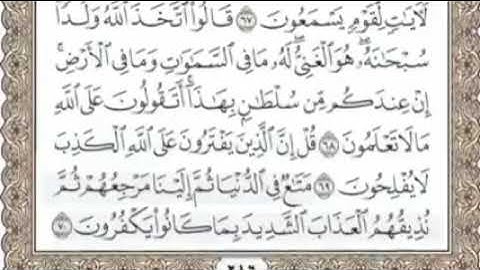 لَآيَٰتٍ لِّقَوْمٍ يَسْمَعُونَ ٦٧ قَالُوا۟ ٱتَّخَذَ ٱللَّهُ وَلَدًا
سُبْحَٰنَهُۥ هُوَ ٱلْغَنِىُّ لَهُۥ مَا فِى ٱلسَّمَٰوَٰتِ وَمَا فِى ٱلْأَرْضِ
إِنْ عِندَكُم مِّن سُلْطَٰنٍۭ بِهَٰذَآ أَتَقُولُونَ عَلَى ٱللَّهِ
مَا لَا تَعْلَمُونَ ٦٨ قُلْ إِنَّ ٱلَّذِينَ يَفْتَرُونَ عَلَى ٱللَّهِ ٱلْكَذِبَ
لَا يُفْلِحُونَ ٦٩ مَتَٰعٌ فِى ٱلدُّنْيَا ثُمَّ إِلَيْنَا مَرْجِعُهُمْ ثُمَّ
نُذِيقُهُمُ ٱلْعَذَابَ ٱلشَّدِيدَ بِمَا كَانُوا۟ يَكْفُرُونَ ٧٠
٢١٦